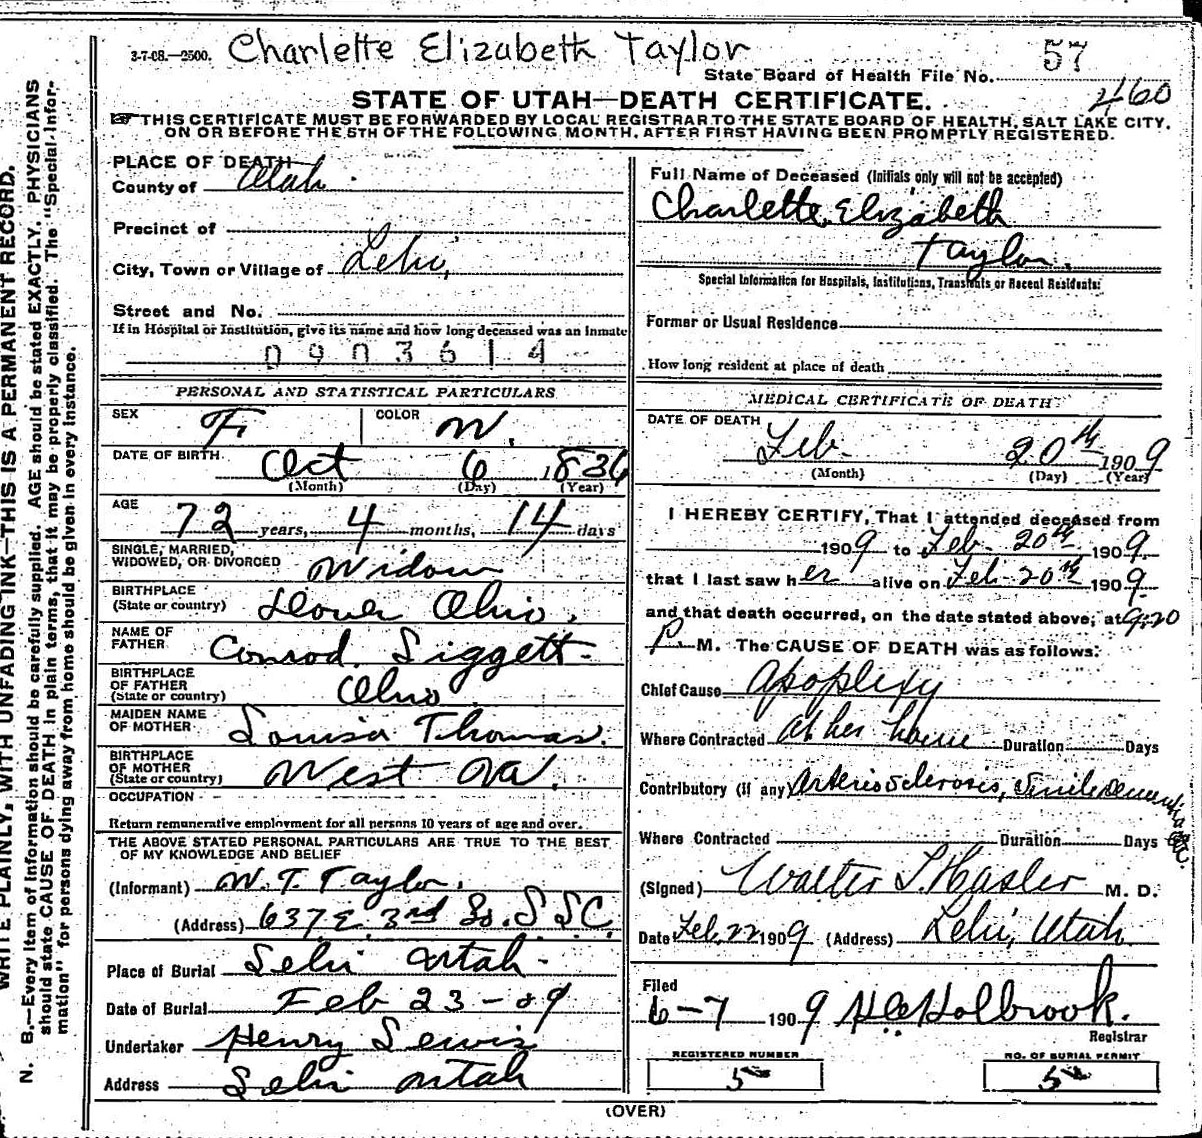 3-7-08.—2500. Charlette Elizabeth Taylor
State Board of Health File No. 57
460
STATE OF UTAH—DEATH CERTIFICATE.
THIS CERTIFICATE MUST BE FORWARDED BY LOCAL REGISTRAR TO THE STATE BOARD OF HEALTH, SALT LAKE CITY,
ON OR BEFORE THE 5TH OF THE FOLLOWING MONTH, AFTER FIRST HAVING BEEN PROMPTLY REGISTERED.
WRITE PLAINLY, WITH UNFADING INK—THIS IS A PERMANENT RECORD.
N. B.—Every item of Information should be carefully supplied. AGE should be stated EXACTLY. PHYSICIANS
should state CAUSE OF DEATH in plain terms, that it may be properly classified. The "Special Infor-
mation" for persons dying away from home should be given in every instance.
PLACE OF DEATH
County of Utah
Precinct of
City, Town or Village of Lehi,
Street and No.
If in Hospital or Institution, give its name and how long deceased was an Inmate
0903614
PERSONAL AND STATISTICAL PARTICULARS
SEX F. COLOR W.
DATE OF BIRTH Oct 6 1836
(Month) (Day) (Year)
AGE
72 years, 4 months, 14 days
SINGLE, MARRIED,
WIDOWED, OR DIVORCED Widow
BIRTHPLACE
(State or country) Dover Ohio.
NAME OF
FATHER Conrod Liggett
BIRTHPLACE
OF FATHER
(State or country) Ohio
MAIDEN NAME
OF MOTHER Louisa Thomas.
BIRTHPLACE
OF MOTHER
(State or country) West Va.
OCCUPATION
Return remunerative employment for all persons 10 years of age and over.
THE ABOVE STATED PERSONAL PARTICULARS ARE TRUE TO THE BEST
OF MY KNOWLEDGE AND BELIEF
(Informant) W. T. Taylor.
(Address) 637 E. 3rd So. S.L.C.
Place of Burial Lehi Utah
Date of Burial Feb 23-09
Undertaker Henry Lewis
Address Lehi Utah
Full Name of Deceased (Initials only will not be accepted)
Charlette Elizabeth
Taylor.
Special Information for Hospitals, Institutions, Transients or Recent Residents:
Former or Usual Residence
How long resident at place of death
MEDICAL CERTIFICATE OF DEATH
DATE OF DEATH
Feb. 20th 1909
(Month) (Day) (Year)
I HEREBY CERTIFY, That I attended deceased from
1909 to Feb. 20th 1909.
that I last saw her alive on Feb. 20th 1909.
and that death occurred, on the date stated above, at 9:20
P. M. The CAUSE OF DEATH was as follows:
Chief Cause Apoplexy
Where Contracted At her home Duration Days
Contributory (if any) Arterio Sclerosis, Senile Dementia
Where Contracted Duration Days
(Signed) Walter T. Hasler M. D.
Date Feb. 22 1909 (Address) Lehi, Utah.
Filed
6-7 1909 Holbrook.
Registrar
REGISTERED NUMBER
5
NO. OF BURIAL PERMIT
5
(OVER)